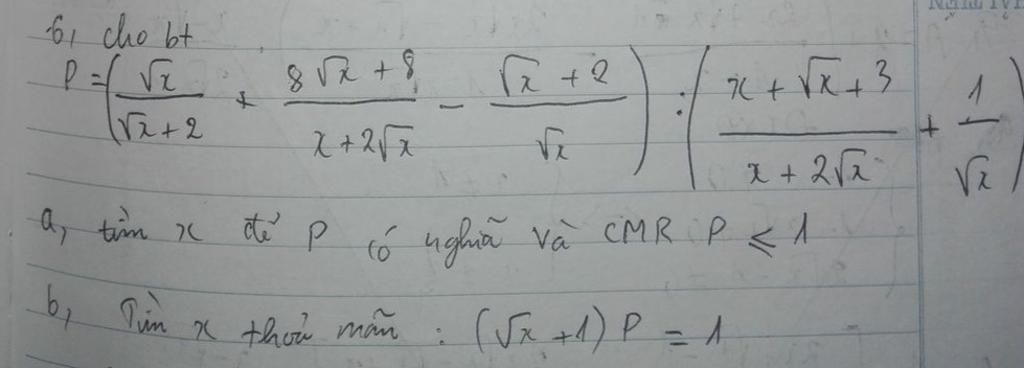 6, cho bt
P = (√x/(√x + 2) + (8√x + 8)/(x + 2√x) - (√x + 2)/√x) : ((x + √x + 3)/(x + 2√x) + 1/√x)
a, tìm x để P có nghĩã và CMR P ≤ 1
b, Tìm x thoả mãn : (√x + 1) P = 1